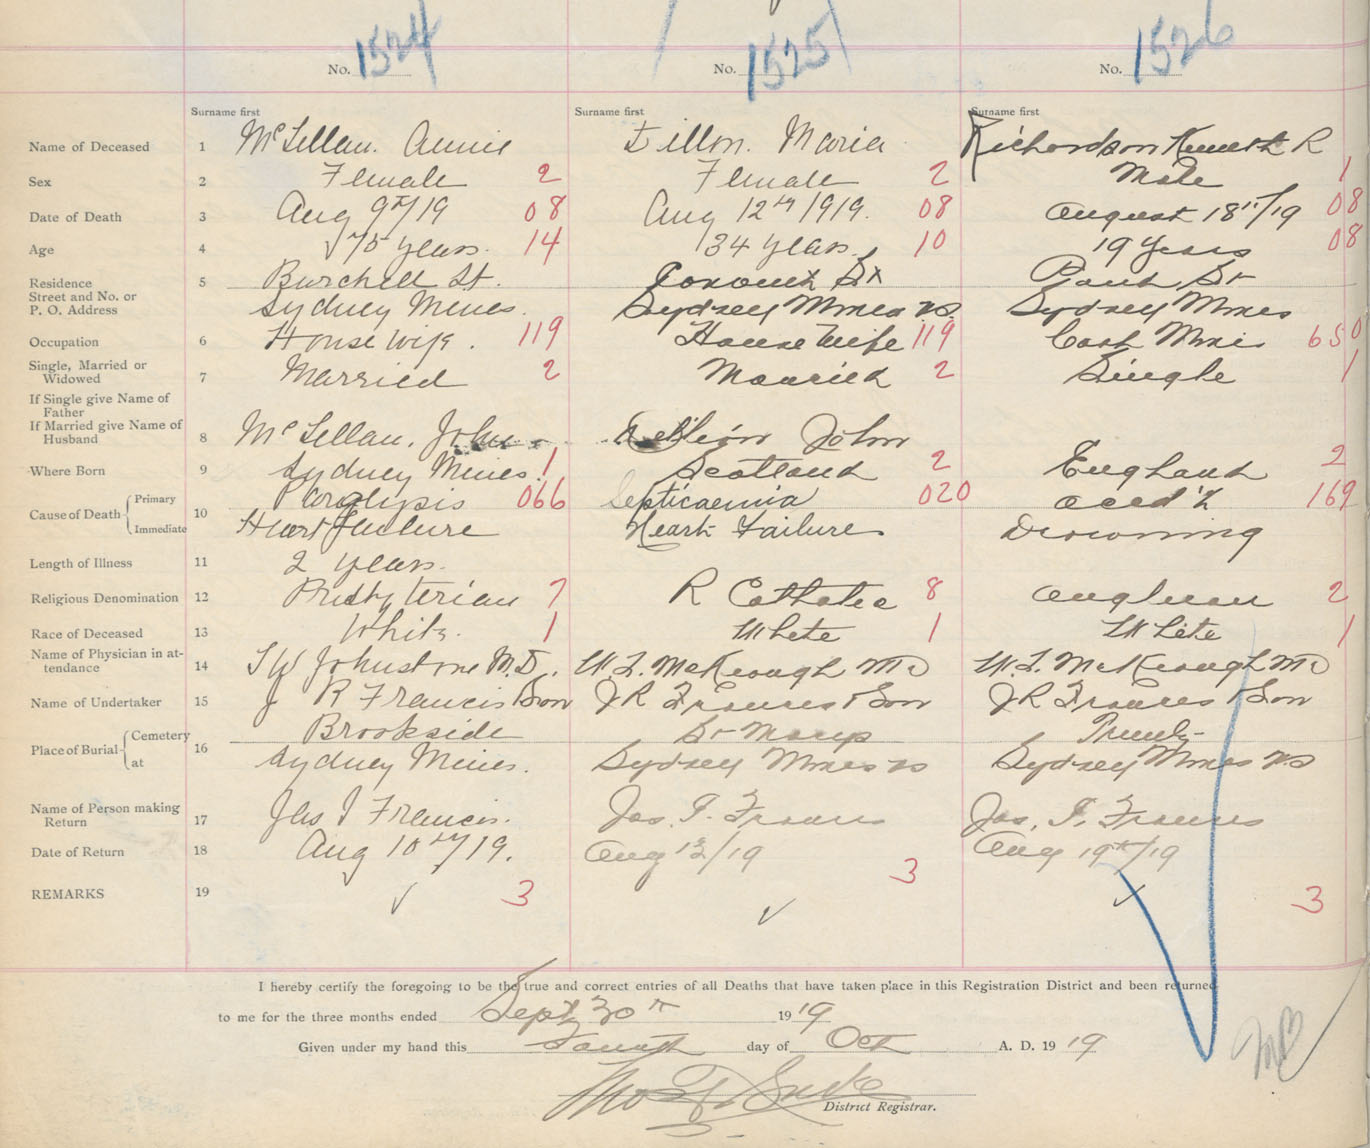 No. 1524 No. 1525 No. 1526
Surname first Surname first Surname first
Name of Deceased 1 McLellan. Annie Dillon. Maria Richardson Kenneth R
Sex 2 Female 2 Female 2 Male 1
Date of Death 3 Aug 9th/19 08 Aug 12th 1919. 08 August 18th/19 08
Age 4 75 years. 14 34 years. 10 19 years 08
Residence 5 Burchell St. St St
Street and No. or
P. O. Address Sydney Mines. Sydney Mines NS. Sydney Mines
Occupation 6 House wife. 119 House Wife 119 Mine 650
Single, Married or
Widowed 7 Married 2 Married 2 Single 1
If Single give Name of
Father
If Married give Name of
Husband 8 McLellan. John John
Where Born 9 Sydney Mines. 1 Scotland 2 England 2
Cause of Death Primary 10 Paralysis 066 Septicaemia 020 accd't 169
Immediate Heart Failure Heart Failure Drowning
Length of Illness 11 2 years.
Religious Denomination 12 Presbyterian 7 R Catholic 8 Anglican 2
Race of Deceased 13 White. 1 White 1 White 1
Name of Physician in at-
tendance 14 Johnstone M.D. McKeough MD McKeough MD
Name of Undertaker 15 J R Francis & Son J R Francis & Son J R Francis & Son
Place of Burial Cemetery 16 Brookside St Marys Trinity
at Sydney Mines. Sydney Mines NS Sydney Mines NS
Name of Person making
Return 17 Jas J Francis. Jas. J. Francis Jas. J. Francis
Date of Return 18 Aug 10th/19. Aug 13/19 Aug 19th/19
REMARKS 19 3 3 3
I hereby certify the foregoing to be the true and correct entries of all Deaths that have taken place in this Registration District and been returned
to me for the three months ended Sept 30th 1919
Given under my hand this Fourth day of Oct A. D. 1919
District Registrar.